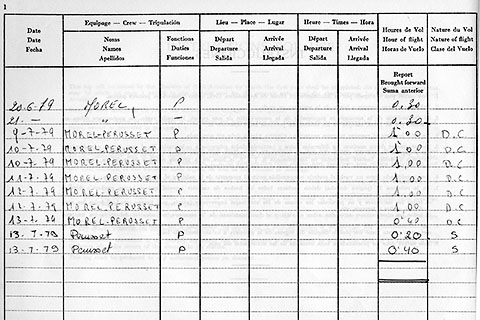 1
Equipage – Crew – Tripulación Lieu – Place – Lugar Heure – Times – Hora Heures de Vol Nature du Vol
Date Noms Fonctions Départ Arrivée Départ Arrivée Hour of flight Nature of flight
Date Names Duties Departure Arrival Departure Arrival Horas de Vuelo Clase del Vuelo
Fecha Apellidos Funciones Salida Llegada Salida Llegada
Report
Brought forward
Suma anterior
20.6.79 MOREL, P 0.30
21. — " — 0.30
9-7-79 MOREL-PERUSSET P 1 00 D.C
10-7-79 MOREL-PERUSSET P 1 00 D.C
10-7-79 MOREL-PERUSSET P 1,00 D.C
11-7-79 MOREL-PERUSSET P 1,00 D.C
12-7-79 MOREL-PERUSSET P 1,00 D.C
12-7-79 MOREL-PERUSSET P 1,00 D.C
13-7-79 MOREL-PERUSSET P 0'40 D.C
13.7.79 Perusset P 0'20 S
13.7.79 Perusset P 0'40 S